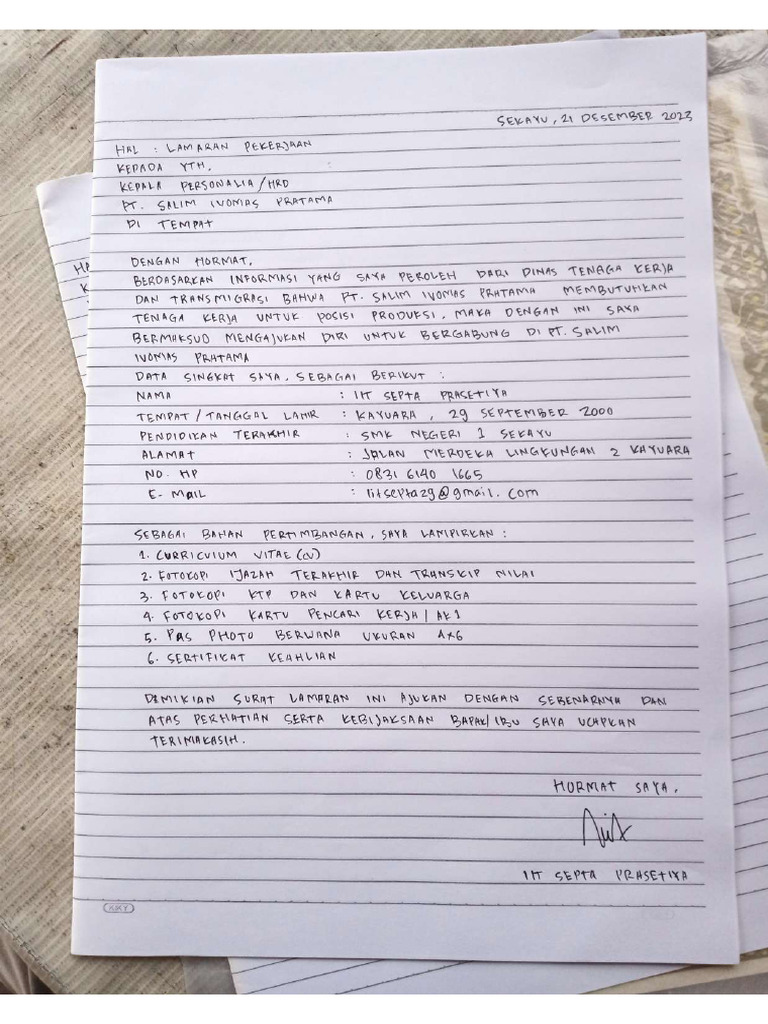 SEKAYU, 21 DESEMBER 2023
HAL : LAMARAN PEKERJAAN
KEPADA YTH.
KEPALA PERSONALIA/HRD
PT. SALIM IVOMAS PRATAMA
DI TEMPAT
DENGAN HORMAT,
BERDASARKAN INFORMASI YANG SAYA PEROLEH DARI DINAS TENAGA KERJA
DAN TRANSMIGRASI BAHWA PT. SALIM IVOMAS PRATAMA MEMBUTUHKAN
TENAGA KERJA UNTUK POSISI PRODUKSI, MAKA DENGAN INI SAYA
BERMAKSUD MENGAJUKAN DIRI UNTUK BERGABUNG DI PT. SALIM
IVOMAS PRATAMA
DATA SINGKAT SAYA, SEBAGAI BERIKUT :
NAMA : IIT SEPTA PRASETIYA
TEMPAT/TANGGAL LAHIR : KAYUARA, 29 SEPTEMBER 2000
PENDIDIKAN TERAKHIR : SMK NEGERI 1 SEKAYU
ALAMAT : JALAN MERDEKA LINGKUNGAN 2 KAYUARA
NO. HP : 0831 6140 1665
E-MAIL : iitsepta29@gmail.com
SEBAGAI BAHAN PERTIMBANGAN, SAYA LAMPIRKAN :
1. CURRICULUM VITAE (CV)
2. FOTOKOPI IJAZAH TERAKHIR DAN TRANSKIP NILAI
3. FOTOKOPI KTP DAN KARTU KELUARGA
4. FOTOKOPI KARTU PENCARI KERJA/AK1
5. PAS PHOTO BERWANA UKURAN 4x6
6. SERTIFIKAT KEAHLIAN
DEMIKIAN SURAT LAMARAN INI AJUKAN DENGAN SEBENARNYA DAN
ATAS PERHATIAN SERTA KEBIJAKSAAN BAPAK/IBU SAYA UCAPKAN
TERIMAKASIH.
HORMAT SAYA,
IIT SEPTA PRASETIYA